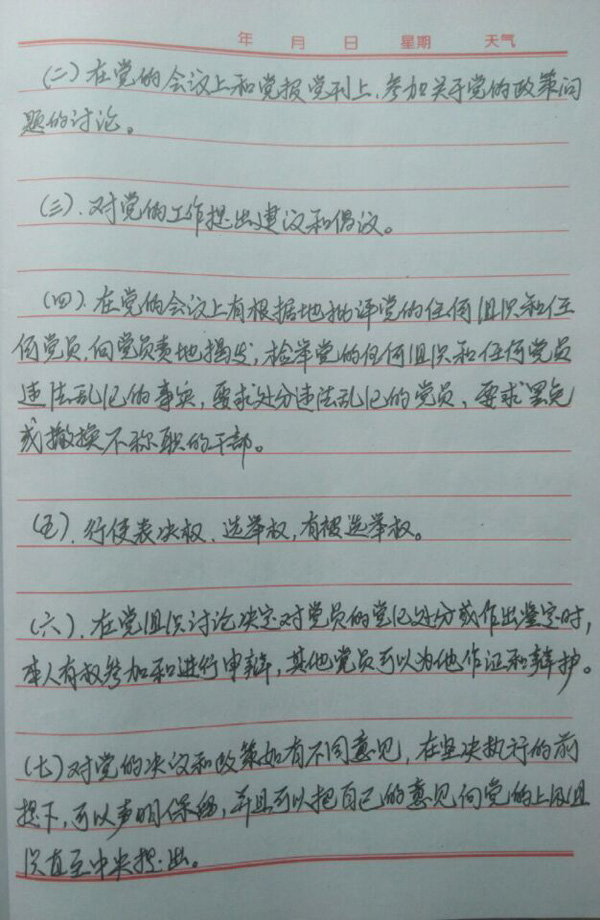 年 月 日 星期 天气
(二)在党的会议上和党报党刊上,参加关于党的政策问
题的讨论。
(三).对党的工作提出建议和倡议。
(四).在党的会议上有根据地批评党的任何组织和任
何党员,向党员责地揭发,检举党的任何组织和任何党员
违法乱纪的事实,要求处分违法乱纪的党员,要求罢免
或撤换不称职的干部。
(五).行使表决权、选举权,有被选举权。
(六).在党组织讨论决定对党员的党纪处分或作出鉴定时,
本人有权参加和进行申辩,其他党员可以为他作证和辩护。
(七)对党的决议和政策如有不同意见,在坚决执行的前
提下,可以声明保留,并且可以把自己的意见向党的上级组
织直至中央提出。